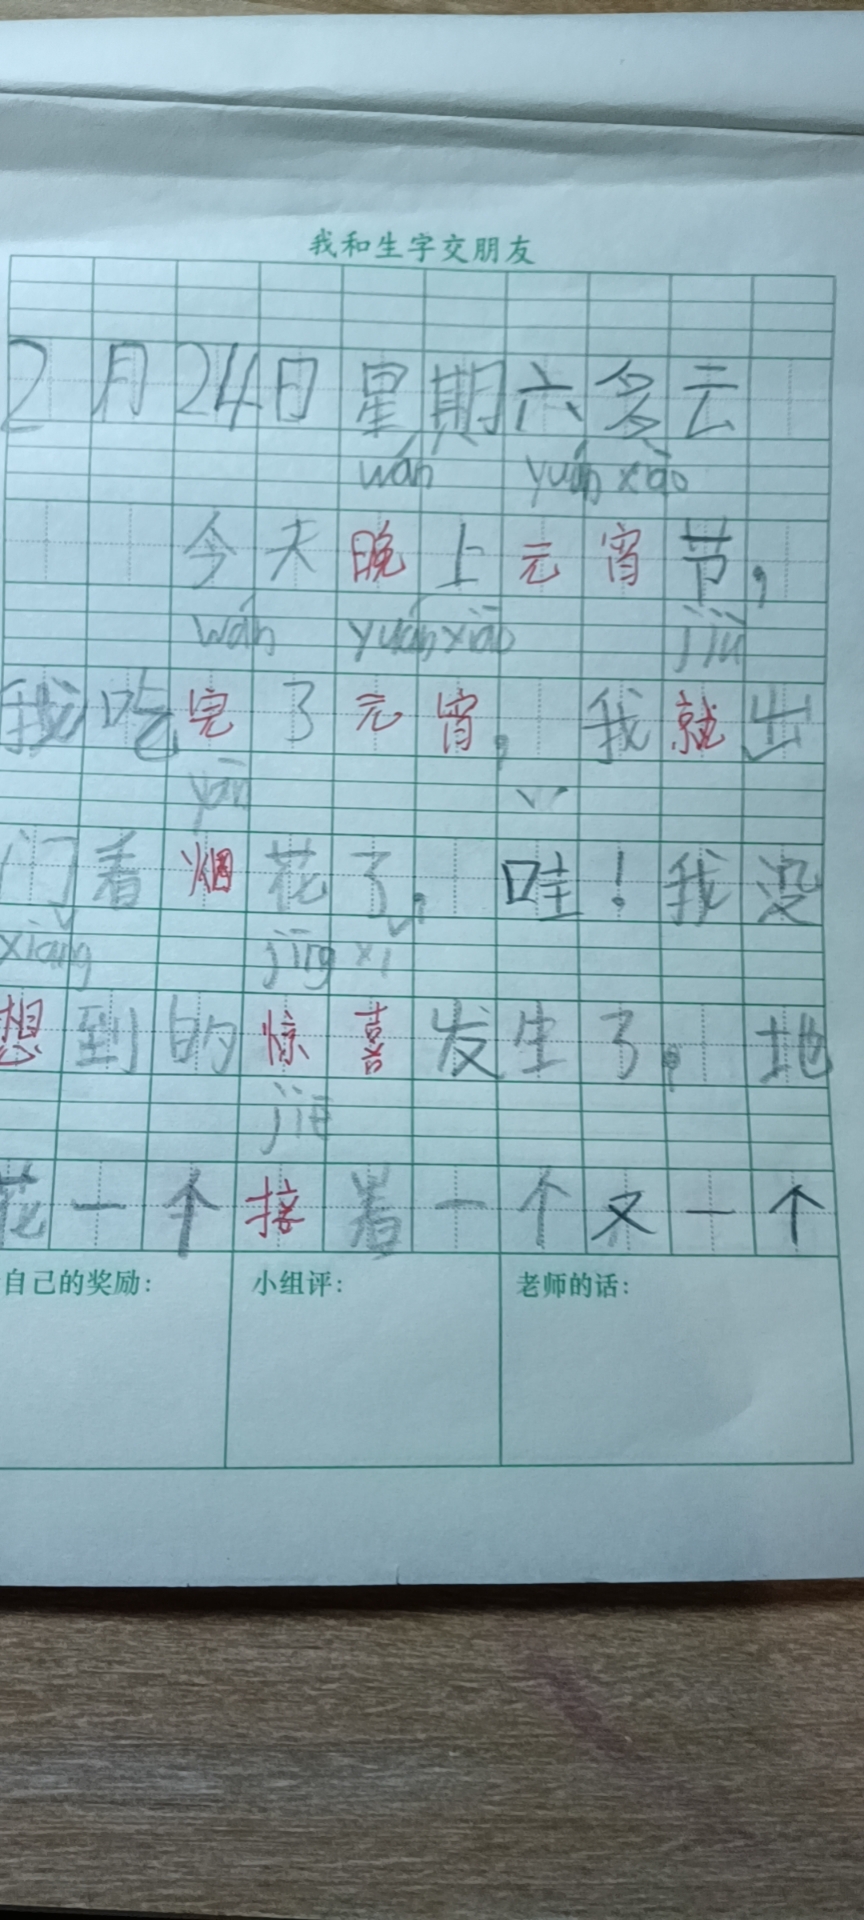 我和生字交朋友
2月24日星期六多云
wán yuán xiāo
今天晚上元宵节，
wán yuán xiāo jiù
我吃完了元宵，我就出
yān
门看烟花了，哇！我没
xiǎng jīng xǐ
想到的惊喜发生了，地
jiē
花一个接着一个又一个
自己的奖励： 小组评： 老师的话：